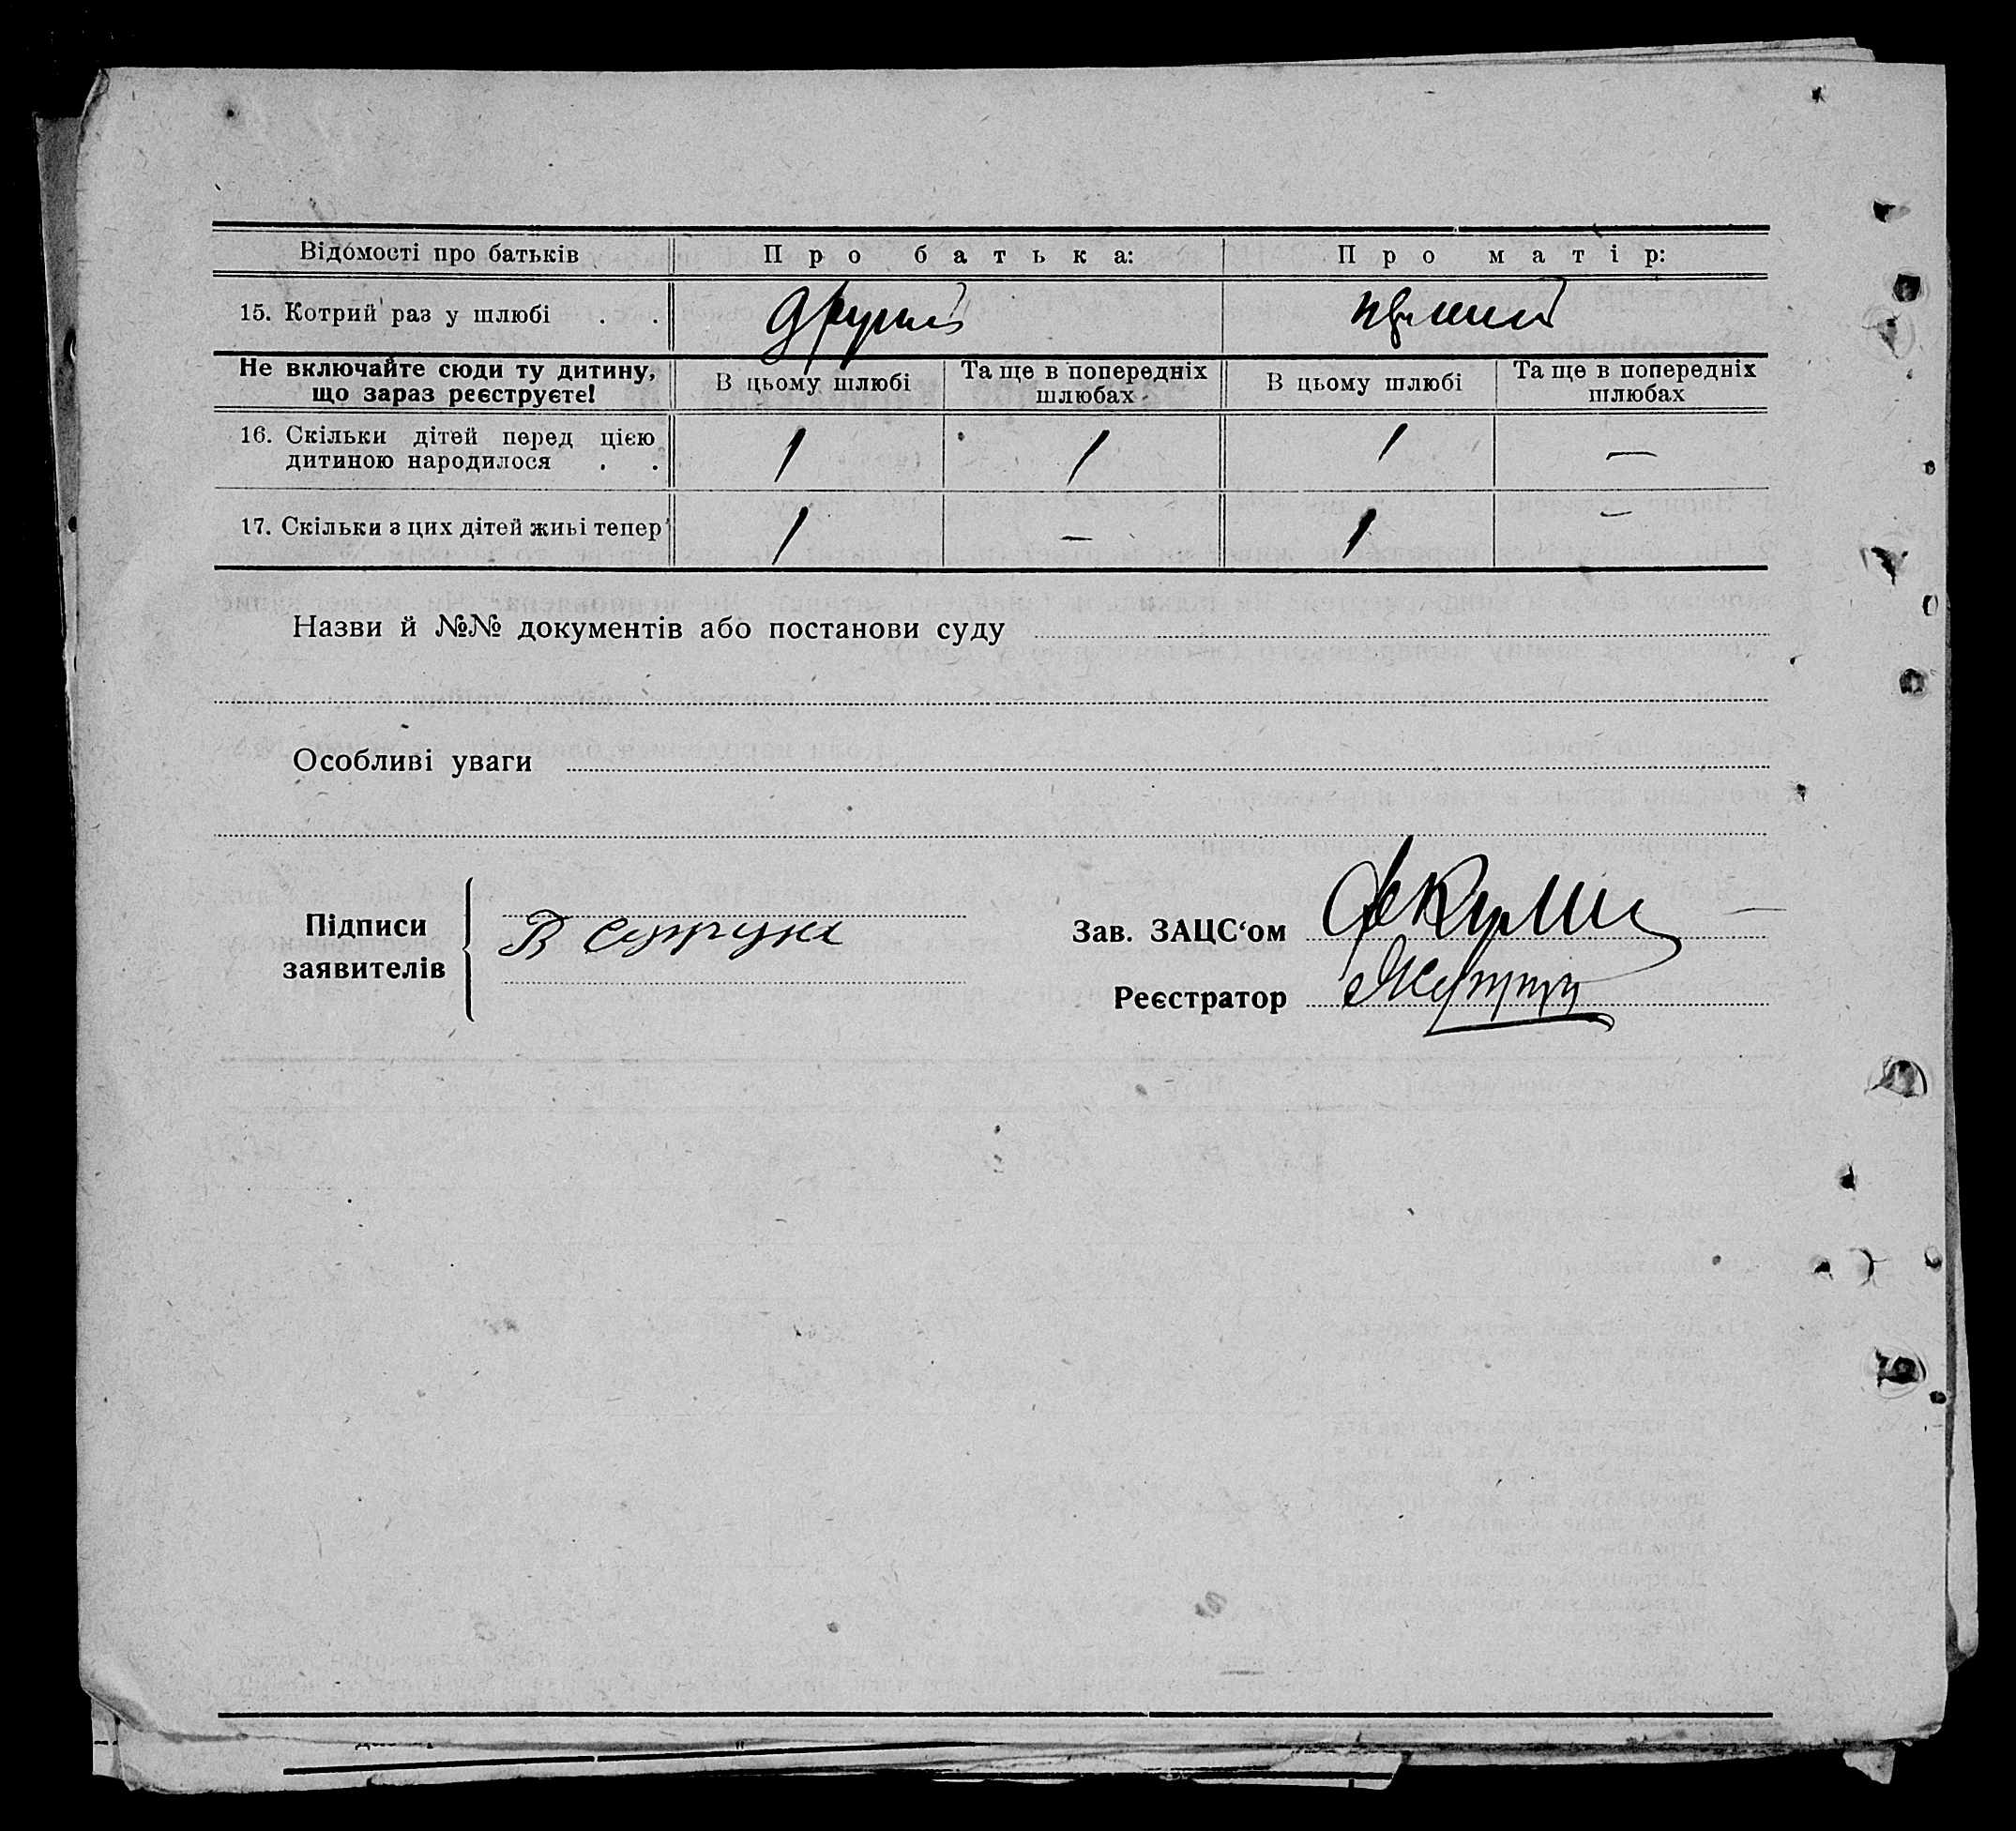 Відомості про батьків Про батька: Про матір:
15. Котрий раз у шлюбі . . другий перший
Не включайте сюди ту дитину, що зараз реєструєте! В цьому шлюбі Та ще в попередніх шлюбах В цьому шлюбі Та ще в попередніх шлюбах
16. Скільки дітей перед цією
дитиною народилося . . 1 1 1 —
17. Скільки з цих дітей живі тепер 1 — 1 —
Назви й №№ документів або постанови суду
Особливі уваги
Підписи
заявителів
Зав. ЗАЦС‘ом
Реєстратор